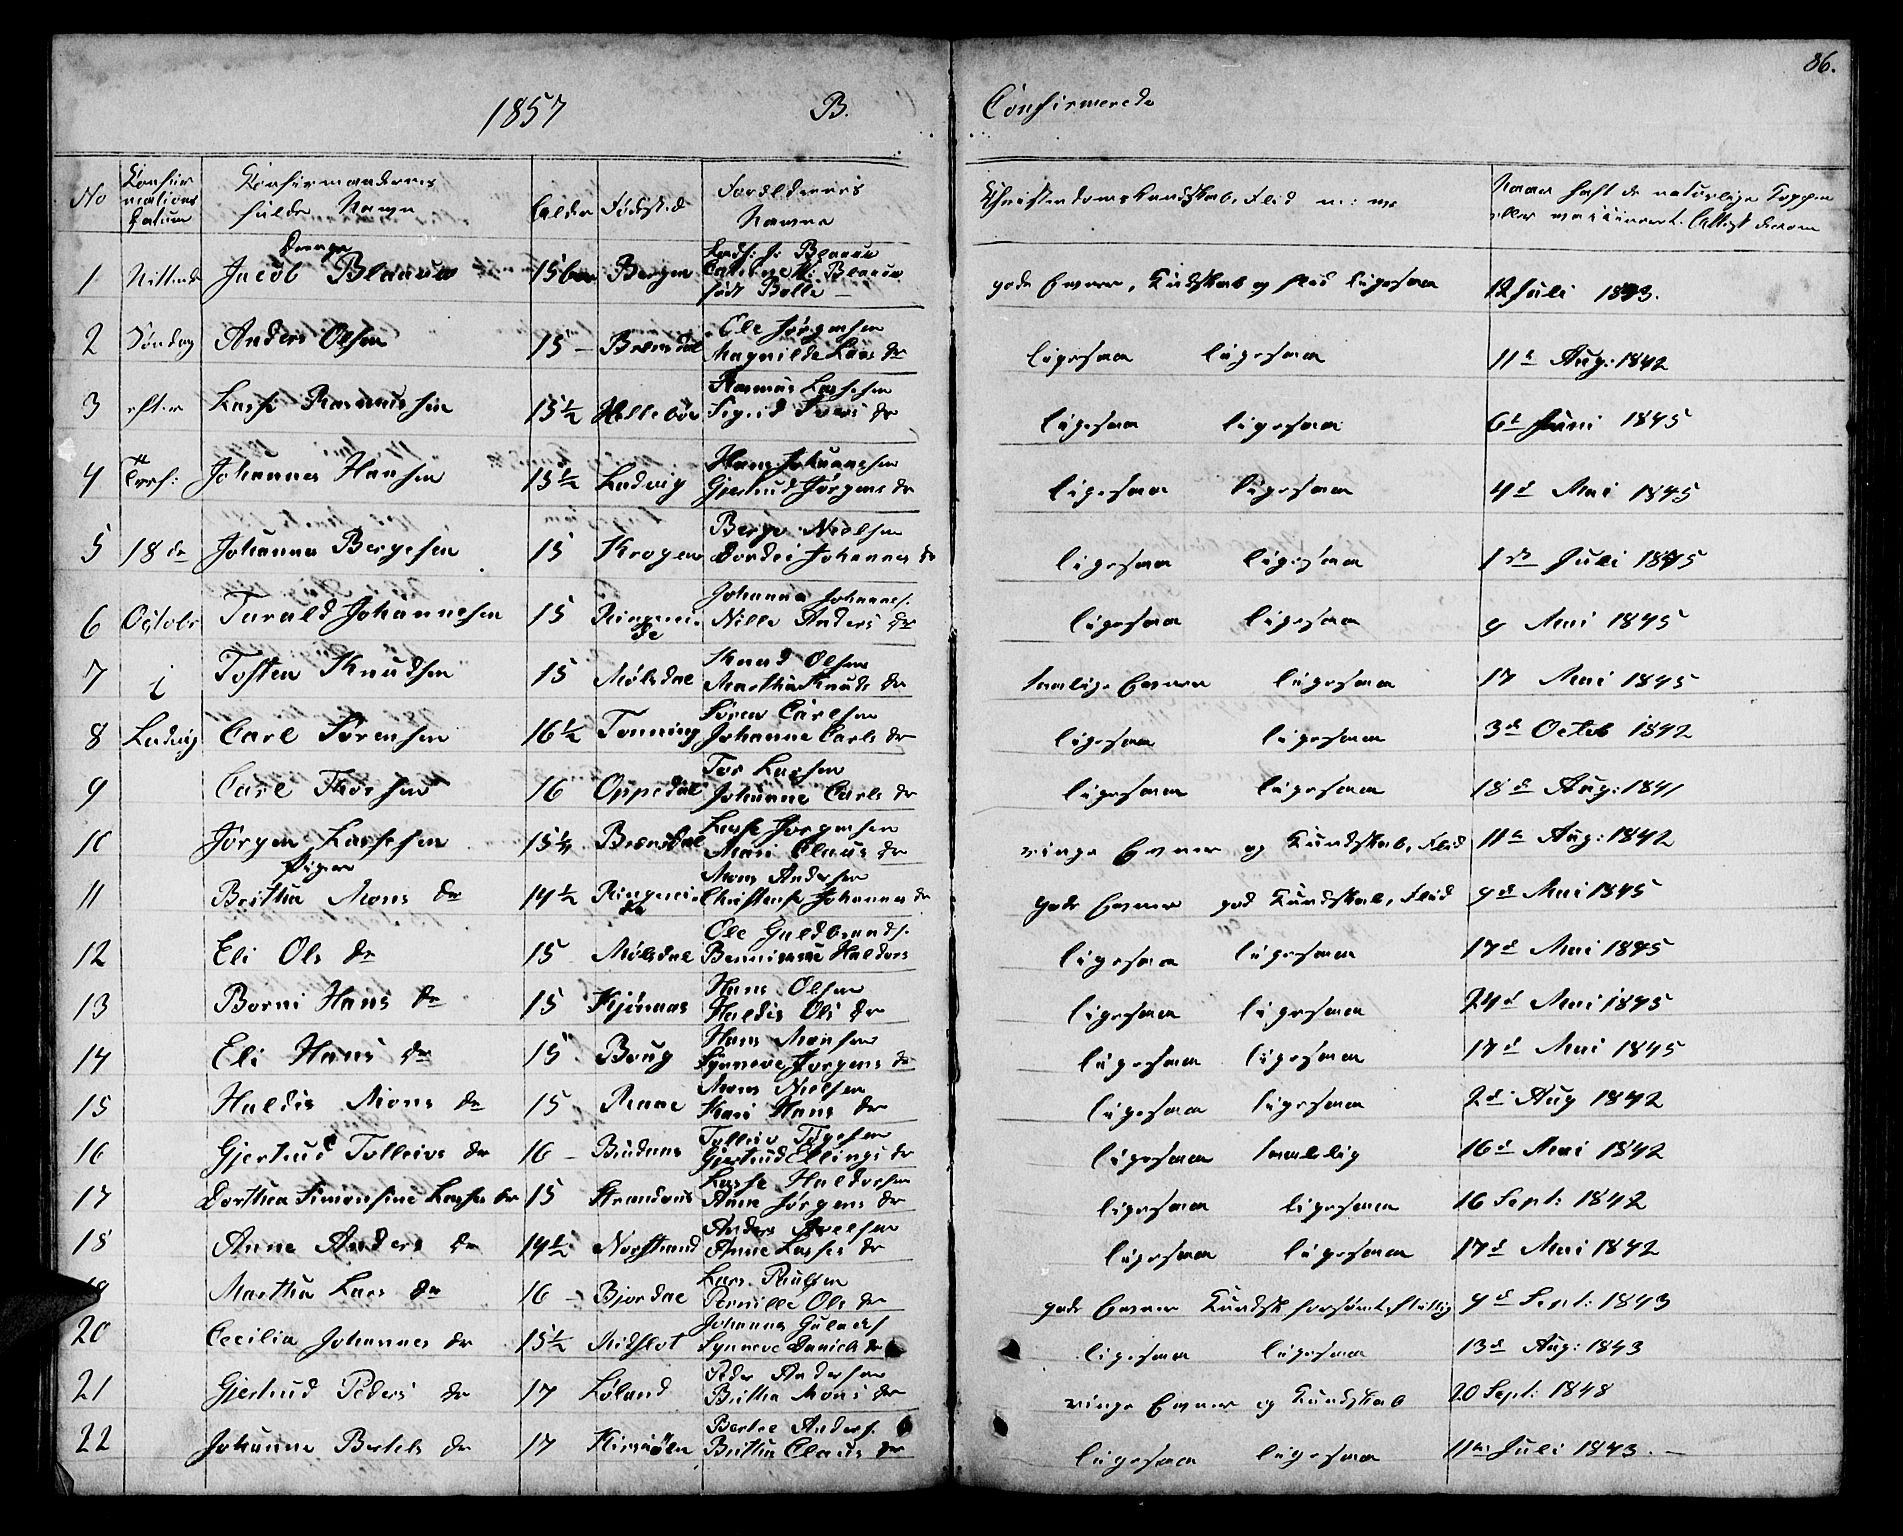 86.
1857 B. Confirmerede
No Konfirmations Datum Konfirmandernes fulde Navn Alder Fødested Forældrenes Navne Christendomskundskab, Flid m: m: Naar haft de naturlige Kopper eller vaccineret. Attest derom
Drenge
1 Nittende Jacob Blaauw 15 Bergen J. Blaauw født Bolle gode Evner, Kundskab og Flid ligesaa 12 Juli 1843.
2 Søndag Anders Olsen 15 – Brænsdal Ole Jørgensen Magnilde Lars dr ligesaa ligesaa 11te Aug: 1842
3 efter Lasse Rasmussen 15½ Hellebøe Rasmus Lassesen Sigrid Ivers dr ligesaa ligesaa 6d Juni 1845
4 Tref: Johannes Hansen 15½ Ladvig Hans Johannesen Gjertrud Jørgens dr ligesaa ligesaa 4d Mai 1845
5 18de Johannes Bergesen 15 Krogen Berge Nielsen Dordei Johannes dr ligesaa ligesaa 1ste Juli 1845
6 October Tarald Johannesen 15 Ringereide Johannes Johannes. Nille Anders dr ligesaa ligesaa 9 Mai 1845
7 i Tosten Knudsen 15 Mølsdal Knud Olsen Martha Knuds dr taalige Evner ligesaa 17 Mai 1845
8 Ladvig Carl Sørensen 16½ Tønning Søren Carlsen Johanne Carls dr ligesaa ligesaa 3d Octob 1842
9 Carl Thorsen 16 Oppedal Tor Lassen Johanne Carls dr ligesaa ligesaa 18d Aug: 1841
10 Jørgen Lassesen 15¼ Brænsdal Lasse Jørgensen Mari Claus dr ringe Evner og Kundskab, Flid 11te Aug: 1842
Piger
11 Britha Mons dr 14½ Ringereide Mons Andersen Christense Johannes dr gode Evner god Kundskab, Flid 9d Mai 1845
12 Eli Ols dr 15 Mølsdal Ole Guldbrands. Haldors ligesaa ligesaa 17d Mai 1845
13 Borni Hans dr 15 Kjønaas Hans Olsen Haldis Ols dr ligesaa ligesaa 24d Mai 1845
14 Eli Hans dr 15 Boug Hans Monsen Synneve Jørgens dr ligesaa ligesaa 17d Mai 1845
15 Haldis Mons dr 15 Mons Nielsen Kari Hans dr ligesaa ligesaa 2d Aug 1842
16 Gjertrud Tolleivs dr 16 – Tolleiv Gjertrud Ellings dr ligesaa taalelig 16d Mai 1842
17 Dorthea Simonsine Lasses dr 15 Strandnæs Lasse Haldorsen Anne Jørgens dr ligesaa ligesaa 16 Sept: 1842
18 Anne Anders dr 14½ Norstrand Anders Anne Lasses dr ligesaa ligesaa 17d Mai 1842
19 Martha Lars dr 16 – Bjordal Lars Pernille Ols dr gode Evner Kundsk forsømt flittig 9d Sept: 1843
20 Cecilia Johannes dr 15½ Johannes Synneve Daniels dr ligesaa ligesaa 13d Aug: 1843
21 Gjertrud Peders dr 17 Løland Peder Andersen Britha Mons dr ringe Evner og Kundskab 20 Sept: 1848
22 Johanne Bertels dr 17 Bertel Anders. Britha Claus dr ligesaa ligesaa 11te Juli 1843. –